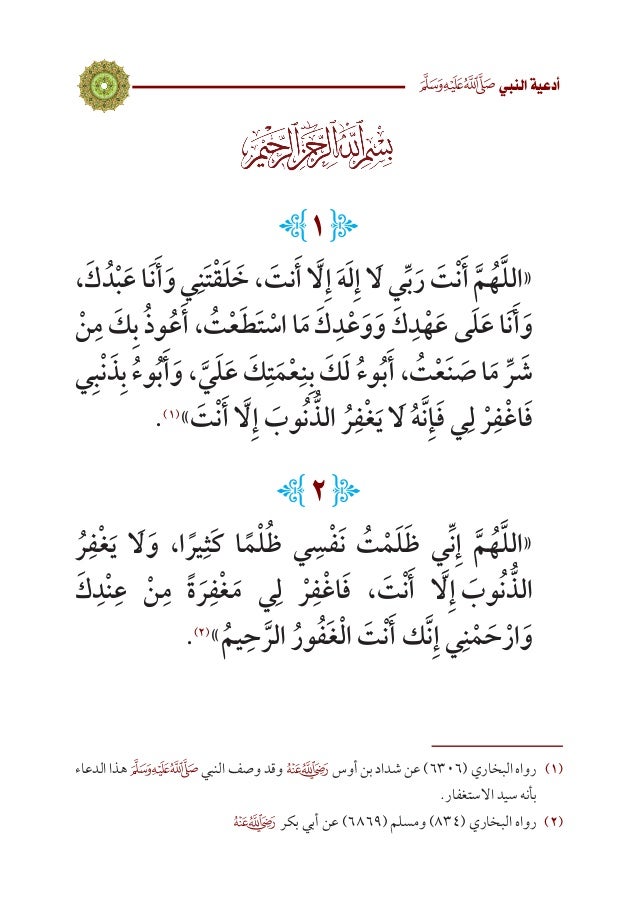 أدعية النبي ﷺ
﷽
١
«اللَّهُمَّ أَنْتَ رَبِّي لَا إِلَهَ إِلَّا أَنتَ، خَلَقْتَنِي وَأَنَا عَبْدُكَ،
وَأَنَا عَلَى عَهْدِكَ وَوَعْدِكَ مَا اسْتَطَعْتُ، أَعُوذُ بِكَ مِنْ
شَرِّ مَا صَنَعْتُ، أَبُوءُ لَكَ بِنِعْمَتِكَ عَلَيَّ، وَأَبُوءُ بِذَنْبِي
فَاغْفِرْ لِي فَإِنَّهُ لَا يَغْفِرُ الذُّنُوبَ إِلَّا أَنْتَ»(١).
٢
«اللَّهُمَّ إِنِّي ظَلَمْتُ نَفْسِي ظُلْمًا كَثِيرًا، وَلَا يَغْفِرُ
الذُّنُوبَ إِلَّا أَنْتَ، فَاغْفِرْ لِي مَغْفِرَةً مِنْ عِنْدِكَ
وَارْحَمْنِي إِنَّك أَنْتَ الْغَفُورُ الرَّحِيمُ»(٢).
(١) رواه البخاري (٦٣٠٦) عن شداد بن أوس رَضِيَ اللَّهُ عَنْهُ وقد وصف النبي ﷺ هذا الدعاء
بأنه سيد الاستغفار.
(٢) رواه البخاري (٨٣٤) ومسلم (٦٨٦٩) عن أبي بكر رَضِيَ اللَّهُ عَنْهُ